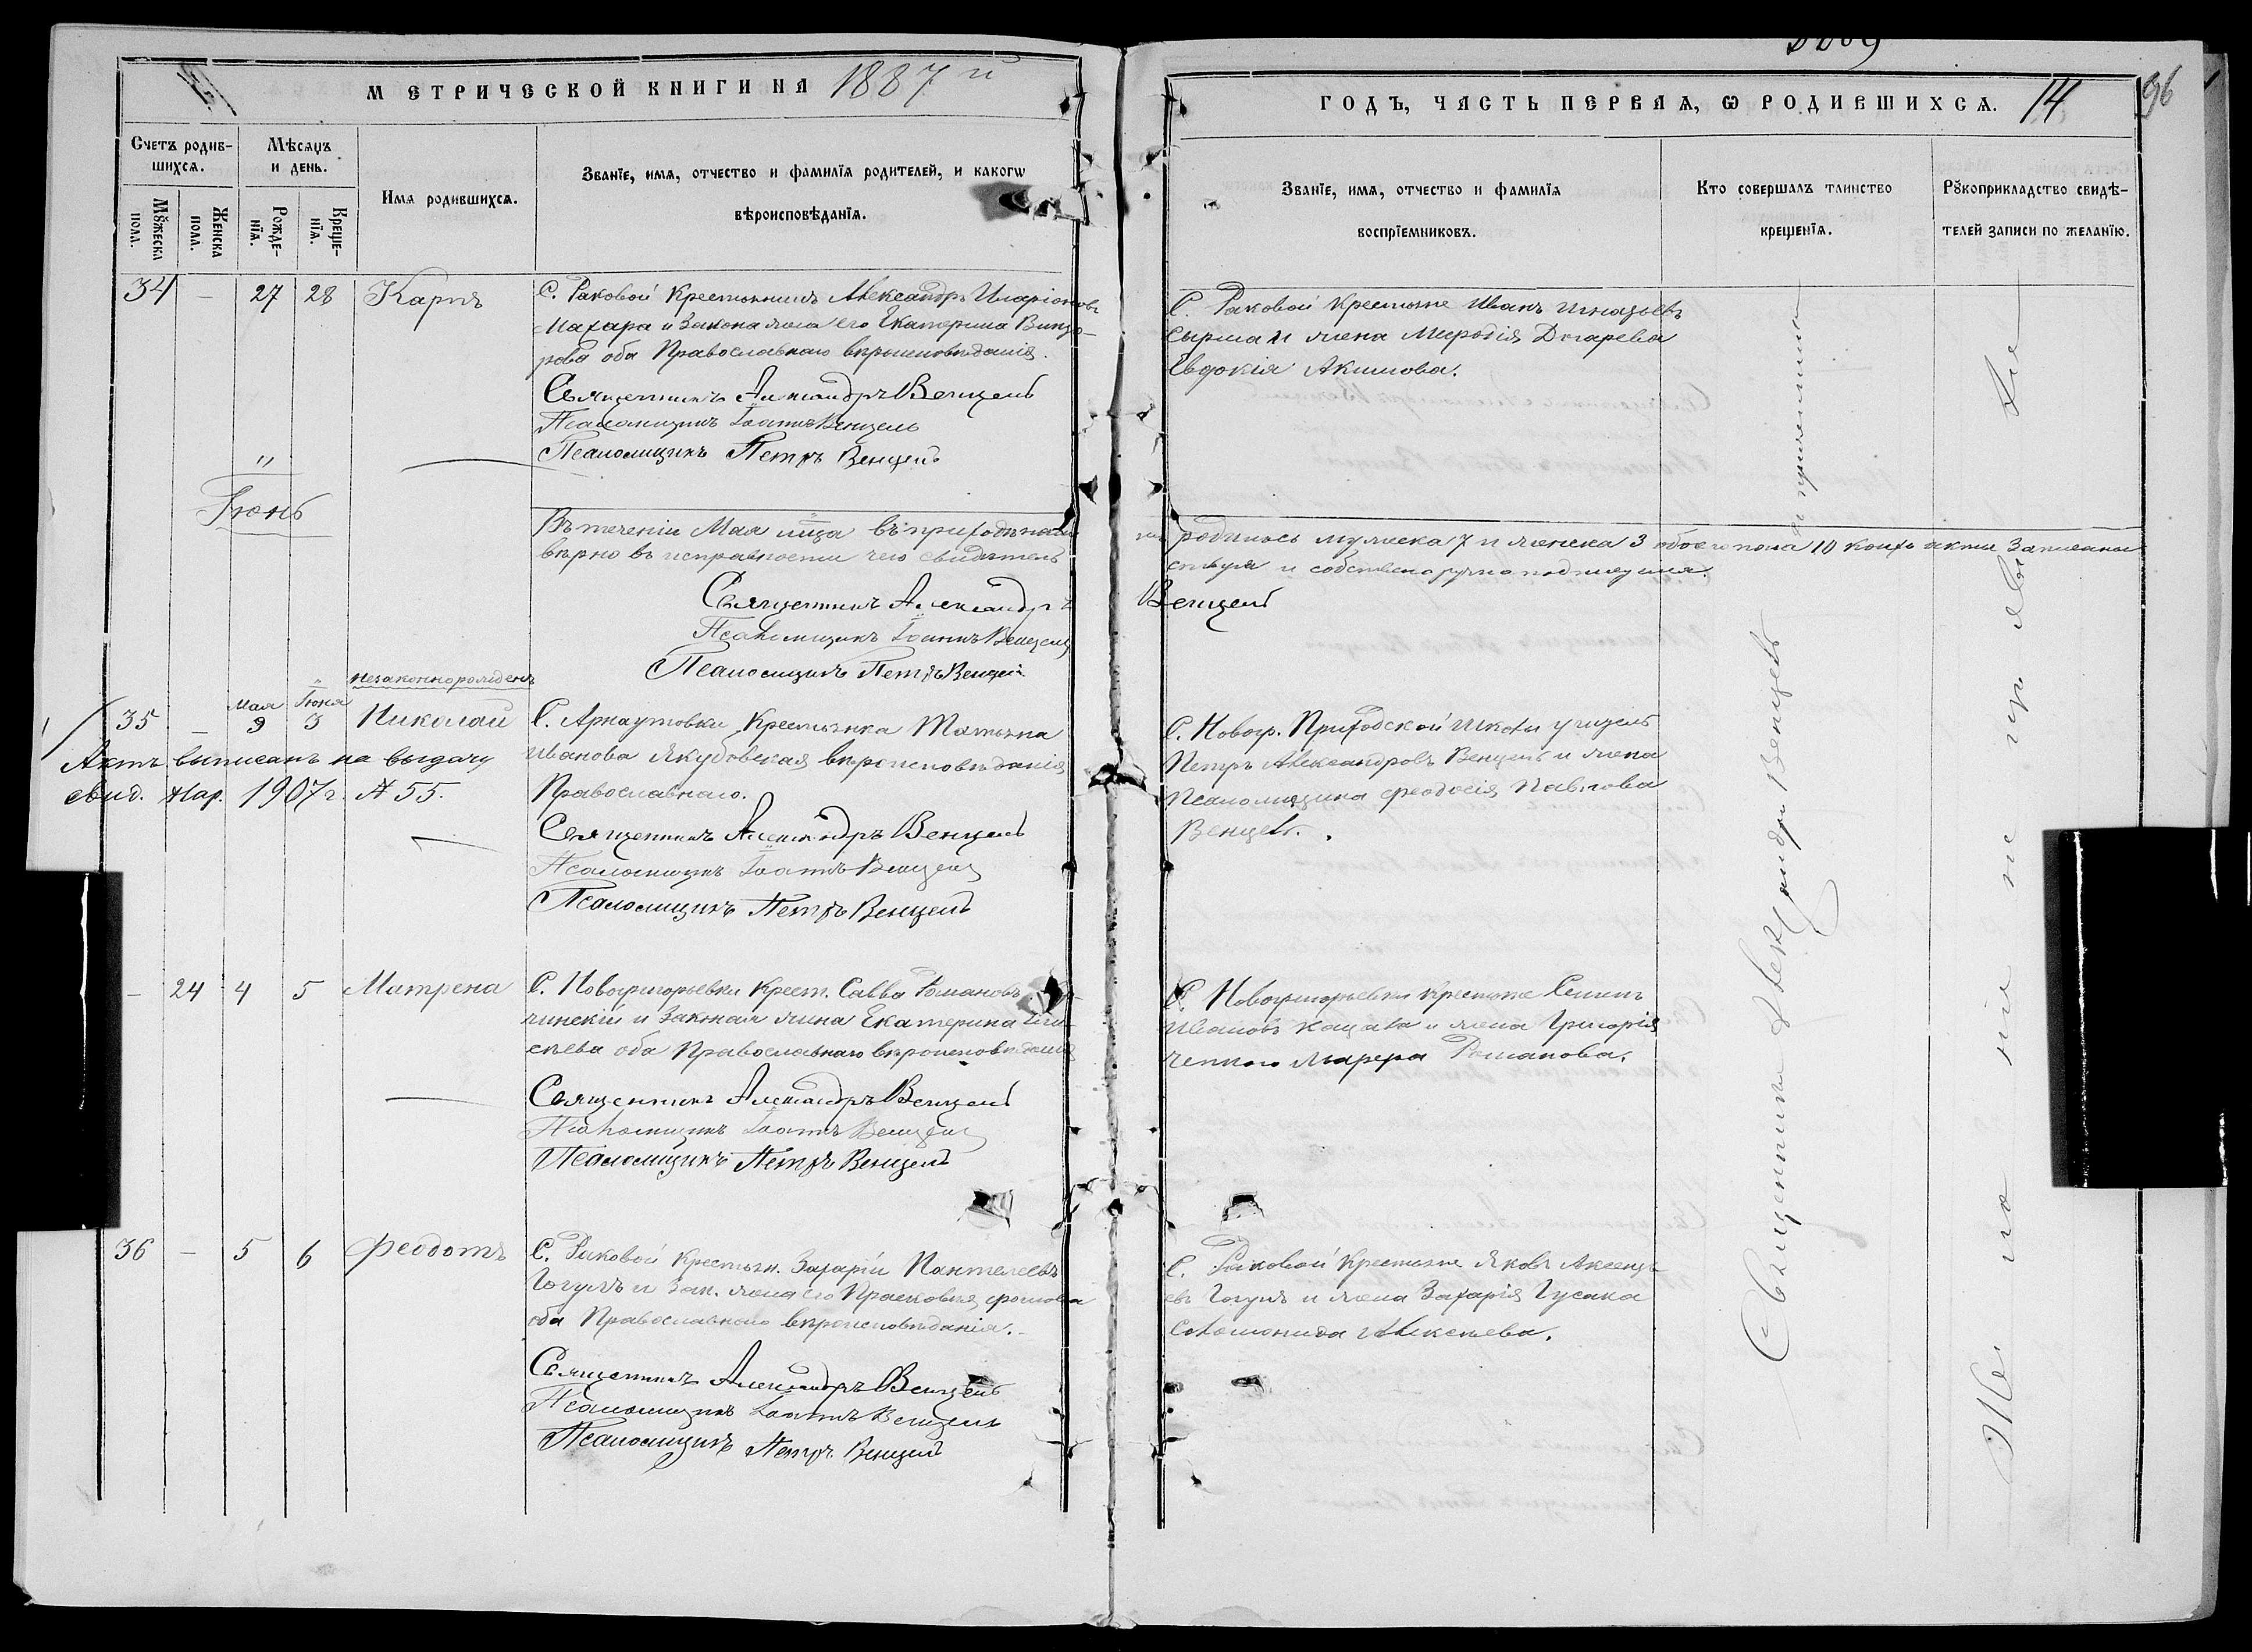 МЕТРИЧЕСКОЙ КНИГИ НА 1887й
Счетъ родив-
шихся.
Мѣсяцъ
и день.
Мужеска
пола.
Женска
пола.
Рожде-
нїя.
Креще-
нїя.
Имя родившихся.
Званїе, имя, отчество и фамилїя родителей, и какогѡ
вѣроисповѣданїя.
34 — 27 28 Карпъ
С. Раковой Крестьянинъ Александръ Иларіоновъ
Махара и Законая жена его Екатерина
оба Православнаго вѣроисповѣданія.
Священникъ Александръ Венцель
Псаломщикъ Іоаннъ Венцель
Псаломщикъ Петръ Венцель
Іюнь
Въ теченіи Мая мѣца въ приходѣ
вѣрно въ исправности чего свидѣтель
Священникъ Александръ
Псаломщикъ Іоаннъ Венцель
Псаломщикъ Петръ Венцель
незаконнорожденъ
Мая Іюня
35 — 9 3 Николай
С. Арнаутовки Крестьянка Татьяна
Иванова Якубовская вѣроисповѣданія
Православнаго.
Актъ выписанъ на выдачу
свид. Мар. 1907 г. № 55.
Священникъ Александръ Венцель
Псаломщикъ Іоаннъ Венцель
Псаломщикъ Петръ Венцель
— 24 4 5 Матрена
С. Новогригорьевки Крест. Савва Романовъ
и Законая жена Екатерина
оба Православнаго вѣроисповѣданія
Священникъ Александръ Венцель
Псаломщикъ Іоаннъ Венцель
Псаломщикъ Петръ Венцель
36 — 5 6 Феодотъ
С. Раковой Крестьян. Захарій Пантелеевъ
Гогулъ и Зак. жена его Прасковія
оба Православнаго вѣроисповѣданія.
Священникъ Александръ Венцель
Псаломщикъ Іоаннъ Венцель
Псаломщикъ Петръ Венцель
ГОДЪ, ЧАСТЬ ПЕРВАЯ, Ѡ РОДИВШИХСЯ. 14
96
Званїе, имя, отчество и фамилїя
воспрїемниковъ.
Кто совершалъ таинство
крещенїя.
Рꙋкоприкладство свидѣ-
телей записи по желанїю.
С. Раковой Крестьяне Иванъ Игнатьевъ
Сырма и жена Мирофія Догарева
Евдокія Акимова.
родилось мужеска 7 и женска 3 обоего пола 10 коихъ акты Записаны
и собственоручно подписуемся.
Венцель
С. Новогр. Приходской Школы учитель
Петръ Александровъ Венцель и жена
Псаломщика Феодосія Павлова
Венцель.
С. Новогригорьевки Крестьяне
Ивановъ и жена Григорія
Марфа Романова.
С. Раковой Крестьяне Яковъ
Гогулъ и жена Захарія Гусака
Соломонида Алексѣева.
Священникъ Александръ Венцель